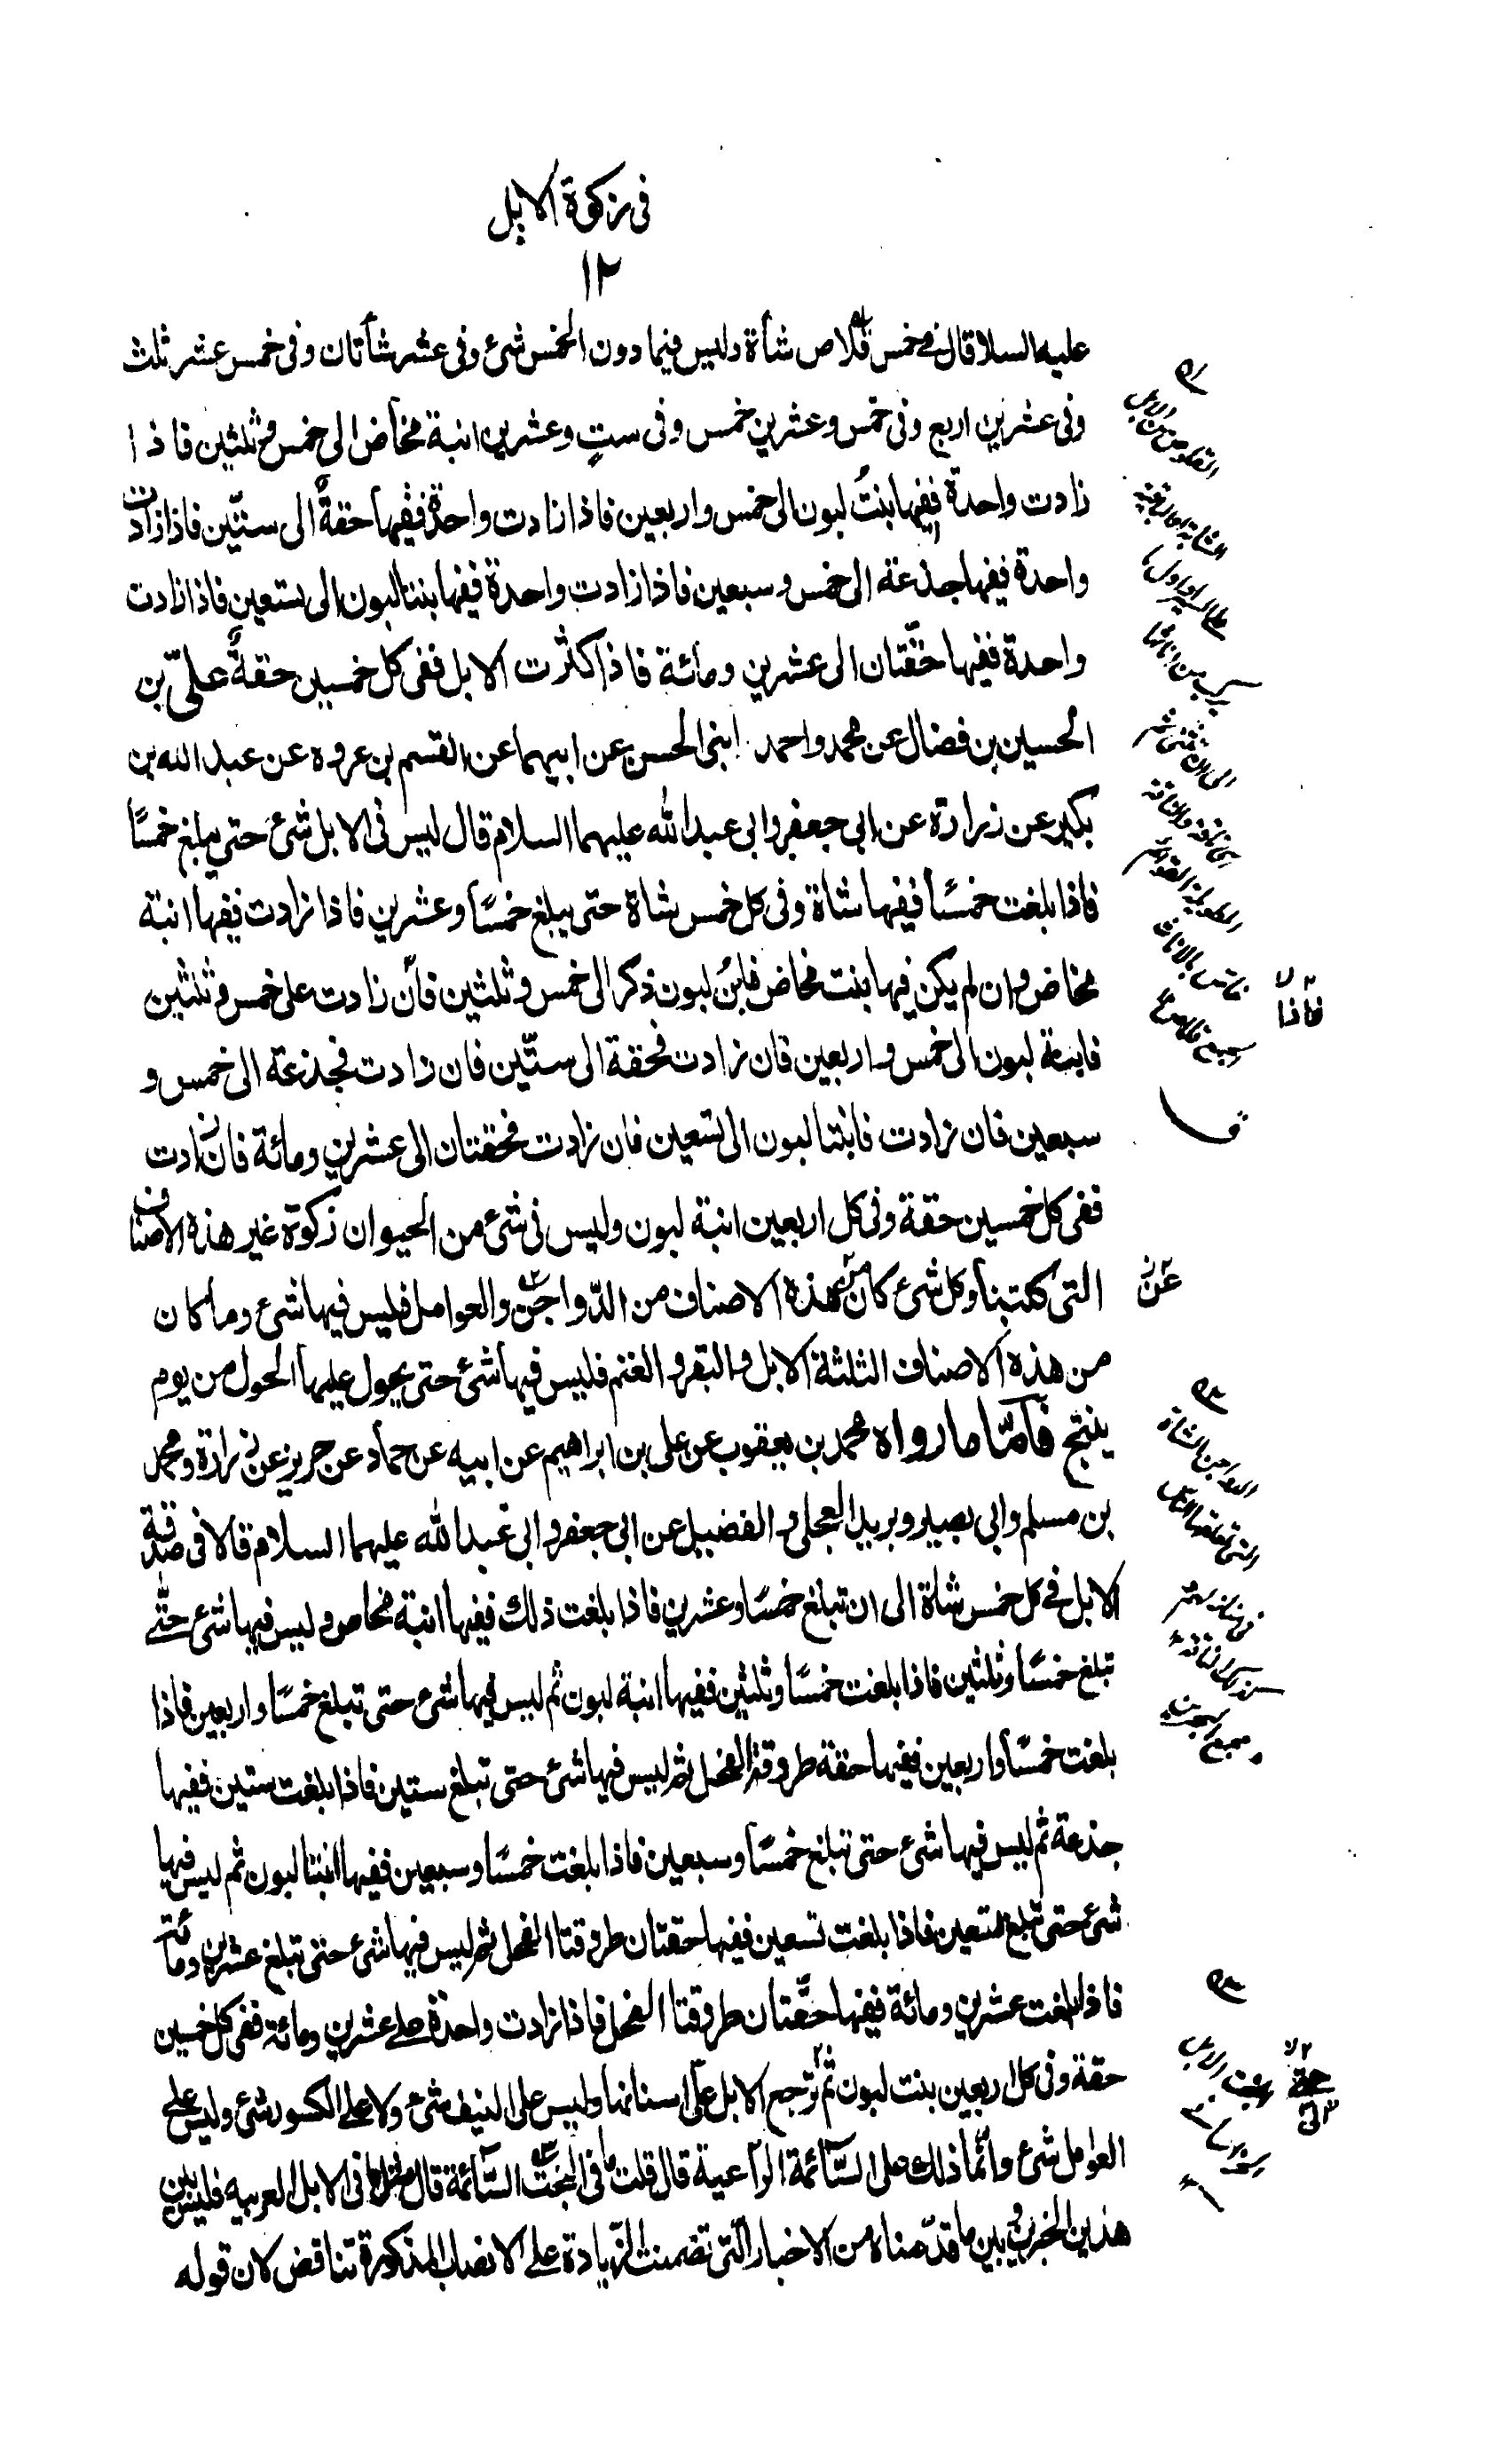 فى زكوة الابل
١٢
عليه السلا قال فى خمس قلاص شأة وليس فيما دون الخمس شئ وفى عشر شأتان وفى خمس عشر ثلث
وفى عشرين اربع وفى خمس وعشرين خمس وفى ستٍ وعشرين ابنة مخاض الى خمس وثلثين فاذا
زادت واحدة ففيها ابنتُ لبون الى خمس واربعين فاذا زادت واحدة ففيها حقةٌ الى ستّين فاذا زادت
واحدة ففيها جذعة الى خمس وسبعين فاذا زادت واحدة ففيها بنتا لبون الى تسعين فاذا زادت
واحدة ففيها حقّتان الى عشرين ومائة فاذا كثرت الابل ففى كل خمسين حقةٌ علىّ بن
الحسين بن فضال عن محمد واحمد ابنى الحسن عن ابيهما عن القسم بن عروه عن عبد الله بن
بكير عن زرارة عن ابى جعفر وابى عبد الله عليهما السلام قال ليس فى الابل شئ حتى يبلغ خمسًا
فاذا بلغت خمسًا ففيها شاة وفى كل خمس شاة حتى يبلغ خمسًا وعشرين فاذا زادت ففيها ابنة
مخاض وان لم يكن فيها بنت مخاض فابنُ لبون ذكر الى خمس وثلثين فان زادت على خمس وثلثين
فاذا
فابنة لبون الى خمس واربعين فان زادت فحقة الى ستّين فان زادت فجذعة الى خمس و
سبعين فان زادت فابنتا لبون الى تسعين فان زادت فحقتان الى عشرين ومائة فان زادت
ففى كل خمسين حقة وفى كل اربعين ابنة لبون وليس فى شئ من الحيوان زكوة غير هذه الاصناف
التى كتبنا وكل شئ كان من هذه الاصناف من الدّواجن والعوامل فليس فيها شئ وما كان
عن
من هذه الاصناف الثلثة الابل والبقر والغنم فليس فيها شئ حتى يحول عليها الحول من يوم
ينتج فأمّا ما رواه محمد بن يعقوب عن على بن ابراهيم عن ابيه عن حماد عن حريز عن زرارة ومحمد
بن مسلم وابى بصير وبريد العجلى والفضيل عن ابى جعفر وابى عبد الله عليهما السلام قالا فى صدقة
الابل فى كل خمس شاة الى ان تبلغ خمسًا وعشرين فاذا بلغت ذلك ففيها ابنة مخاض وليس فيها شئ حتّى
تبلغ خمسًا وثلثين فاذا بلغت خمسًا وثلثين ففيها ابنة لبون ثم ليس فيها شئ حتى تبلغ خمسًا واربعين فاذا
بلغت خمسًا واربعين ففيها حقة طروقة الفحل ثم ليس فيها شئ حتى تبلغ ستين فاذا بلغت ستين ففيها
جذعة ثم ليس فيها شئ حتى تبلغ خمسًا وسبعين فاذا بلغت خمسًا وسبعين ففيها ابنتا لبون ثم ليس فيها
شئ حتى تبلغ تسعين فاذا بلغت تسعين ففيها حقتان طروقتا الفحل ثم ليس فيها شئ حتى تبلغ عشرين ومائة
فاذا بلغت عشرين ومائة ففيها حقّتان طروقتا الفحل فاذا زادت واحدة على عشرين ومائة ففى كل خمسين
حقة وفى كل اربعين بنت لبون ثم ترجع الابل على اسنانها وليس على النيف شئ ولا على الكسور شئ وليس على
العوامل شئ وانّما ذلك على السّائمة الرّاعية قال قلت ما فى البخت السّائمة قال مثل ما فى الابل العربيه فليس بين
هذين الخبرين وبين ما قدّمناه من الاخبار الّتى تضمنت الزّيادة على الانصاب المذكورة تناقض لان قوله